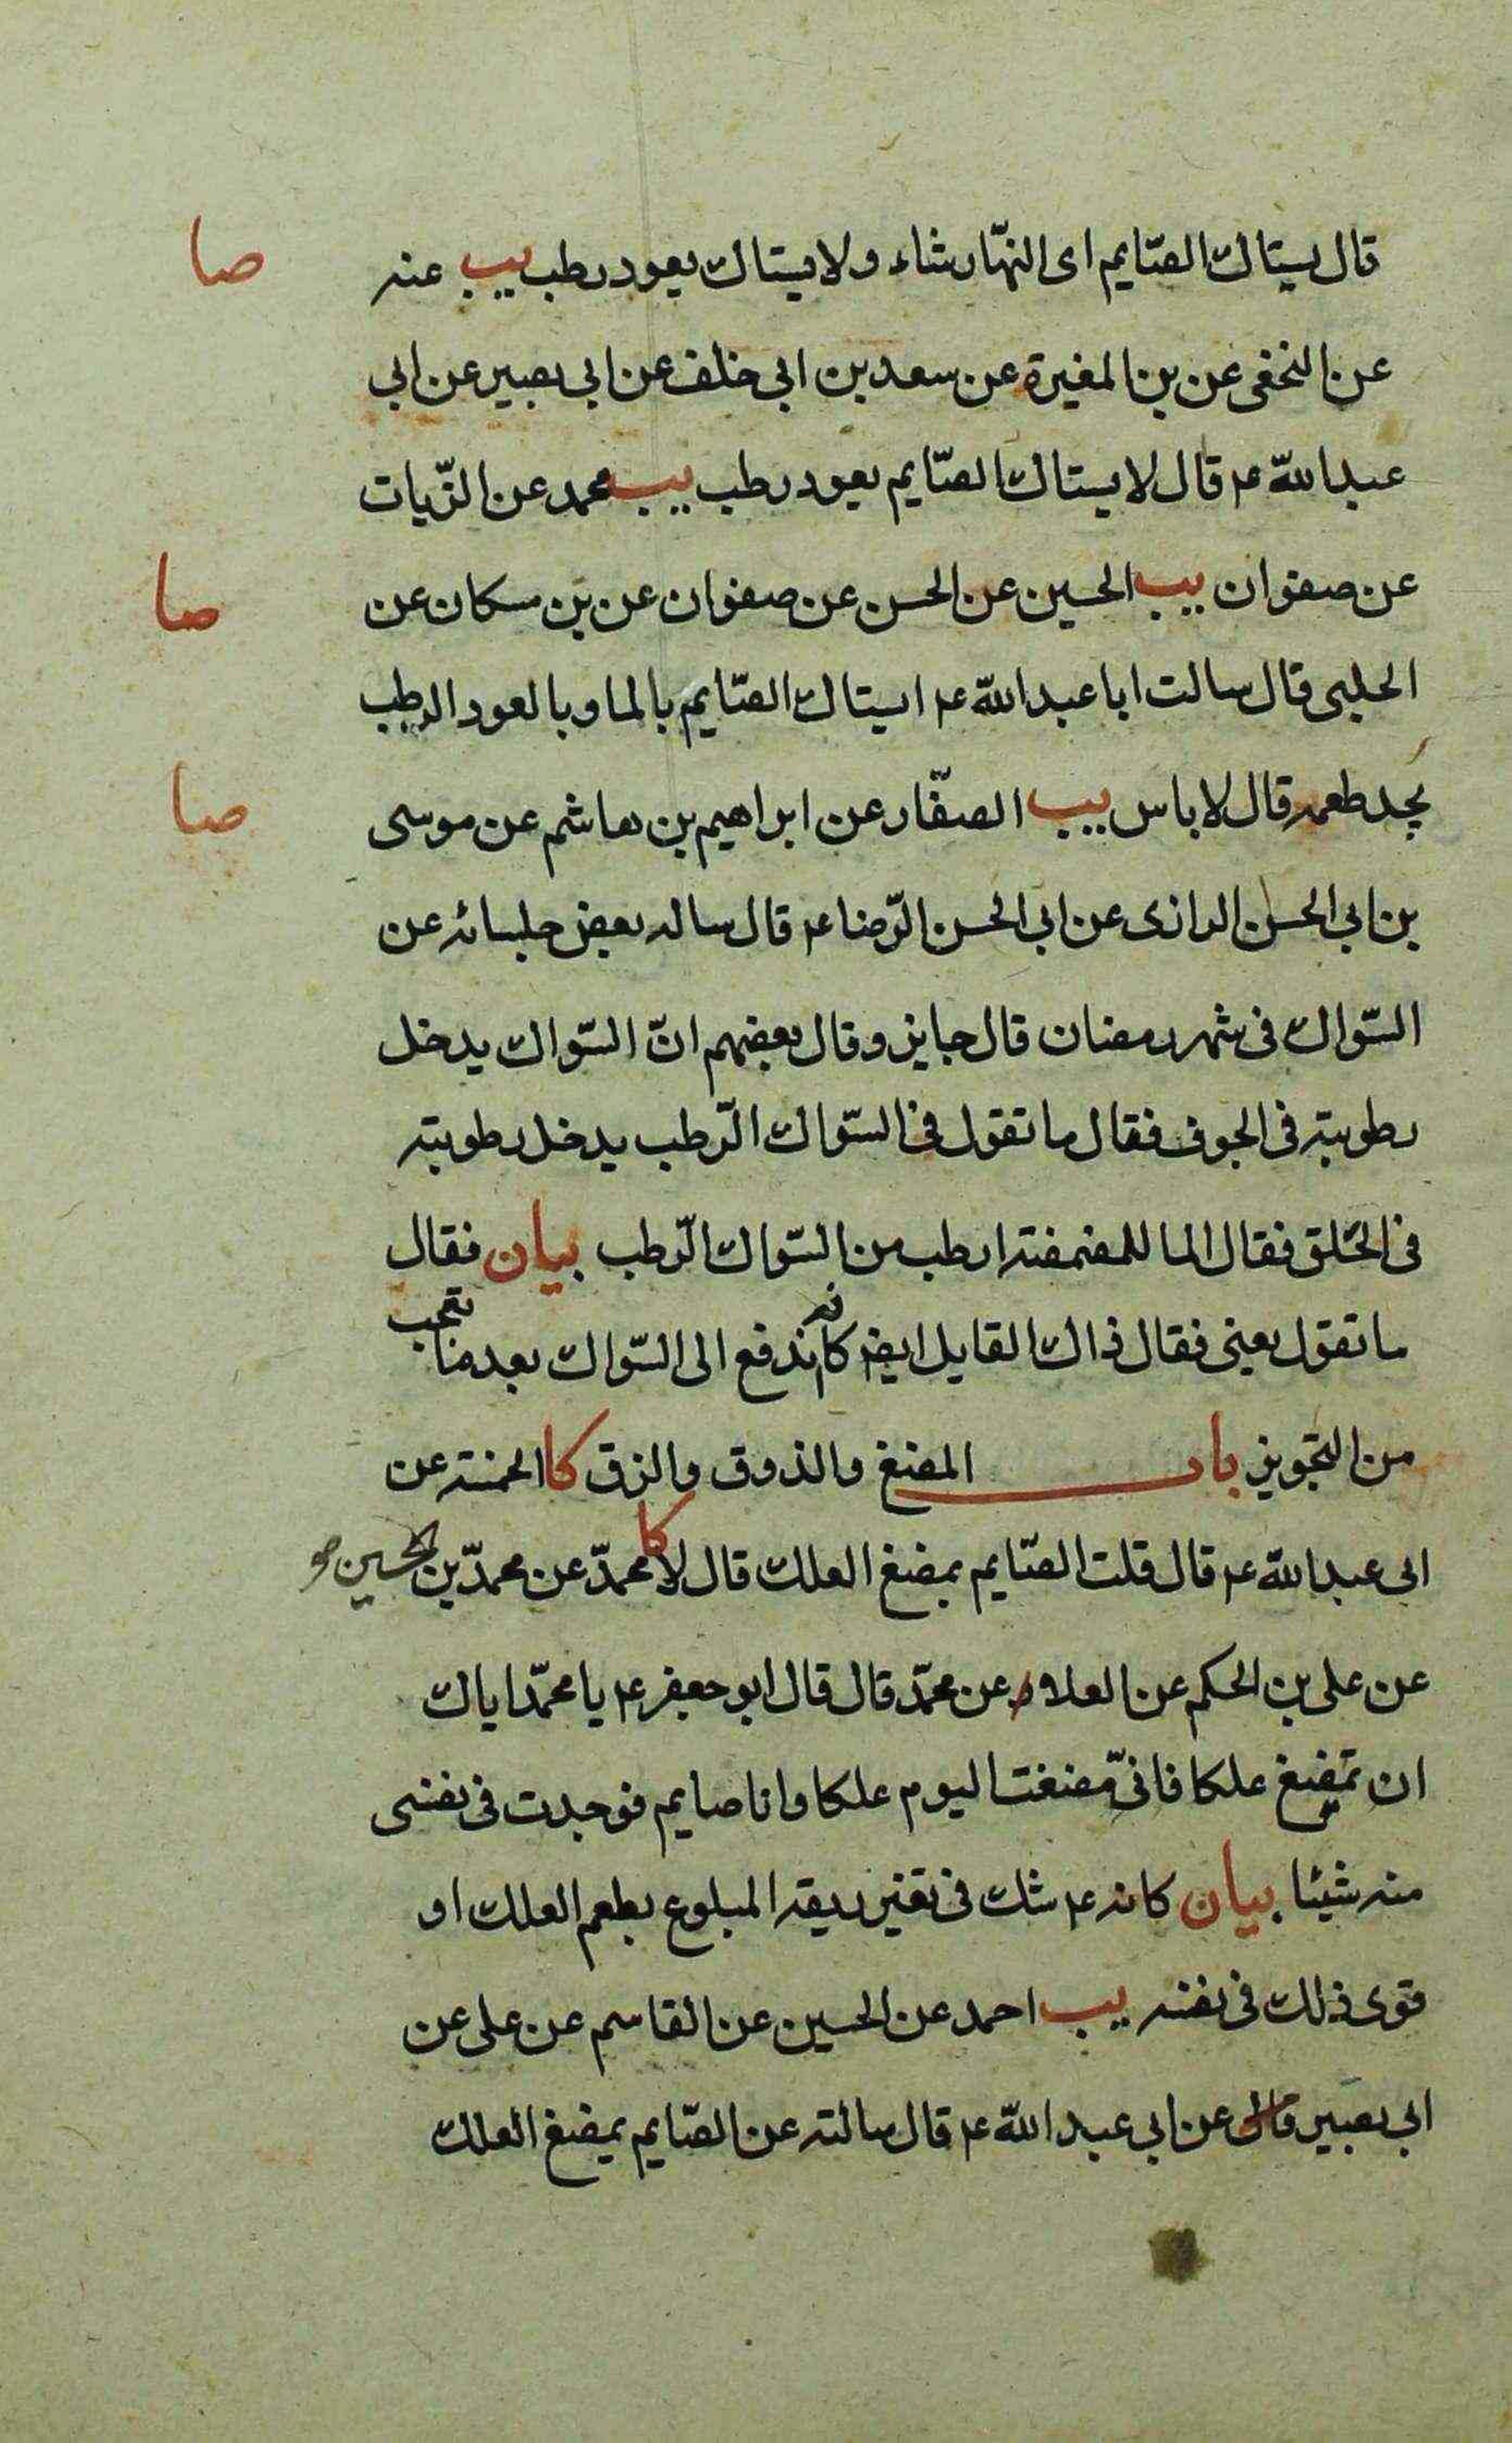 صا
قال يستاك الصّايم اى النهّار شاء ولا يستاك بعود رطب يب عنه
عن النخعى عن بن المغيرة عن سعد بن ابى خلف عن ابى بصير عن ابى
عبد اللّه ع قال لا يستاك الصّايم بعود رطب يب محمد عن الزّيات
صا
عن صفوان يب الحسين عن الحسن عن صفوان عن بن مسكان عن
الحلبى قال سالت ابا عبد اللّه ع ايستاك الصّايم بالما وبالعود الرطب
صا
يجد طعمه قال لا باس يب الصفّار عن ابراهيم بن هاشم عن موسى
بن ابى الحسن الرازى عن ابى الحسن الرّضا ع قال ساله بعض جلسائه عن
السّواك فى شهر رمضان قال جايز وقال بعضهم انّ السّواك يدخل
رطوبته فى الجوف فقال ما تقول فى السّواك الرّطب يدخل رطوبته
فى الحَلق فقال الما للمضمضة ارطب من السّواك الرّطب بيان فقال
ما تقول يعنى فقال ذاك القايل ايضا كانه ندفع الى السّواك بعد منا تعجب
من التجّويز باب المضغ والذوق والزق كا الخمسة عن
ابى عبد اللّه ع قال قلت الصّايم يمضغ العلك قال لا كا محمدّ عن محمدّ بن الحسين
عن على بن الحكم عن العلاء عن محمّد قال قال ابو جعفر ع يا محمّد اياك
ان تمضغ علكا فانىّ مضغت اليوم علكا وانا صايم فوجدت فى نفسى
منه شيئا بيان كانه ع شك فى تغير ريقه المبلوع بطعم العلك او
قوى ذلك فى نفسه يب احمد عن الحسين عن القاسم عن على عن
ابى بصير قال عن ابى عبد اللّه ع قال سالته عن الصّايم يمضغ العلك